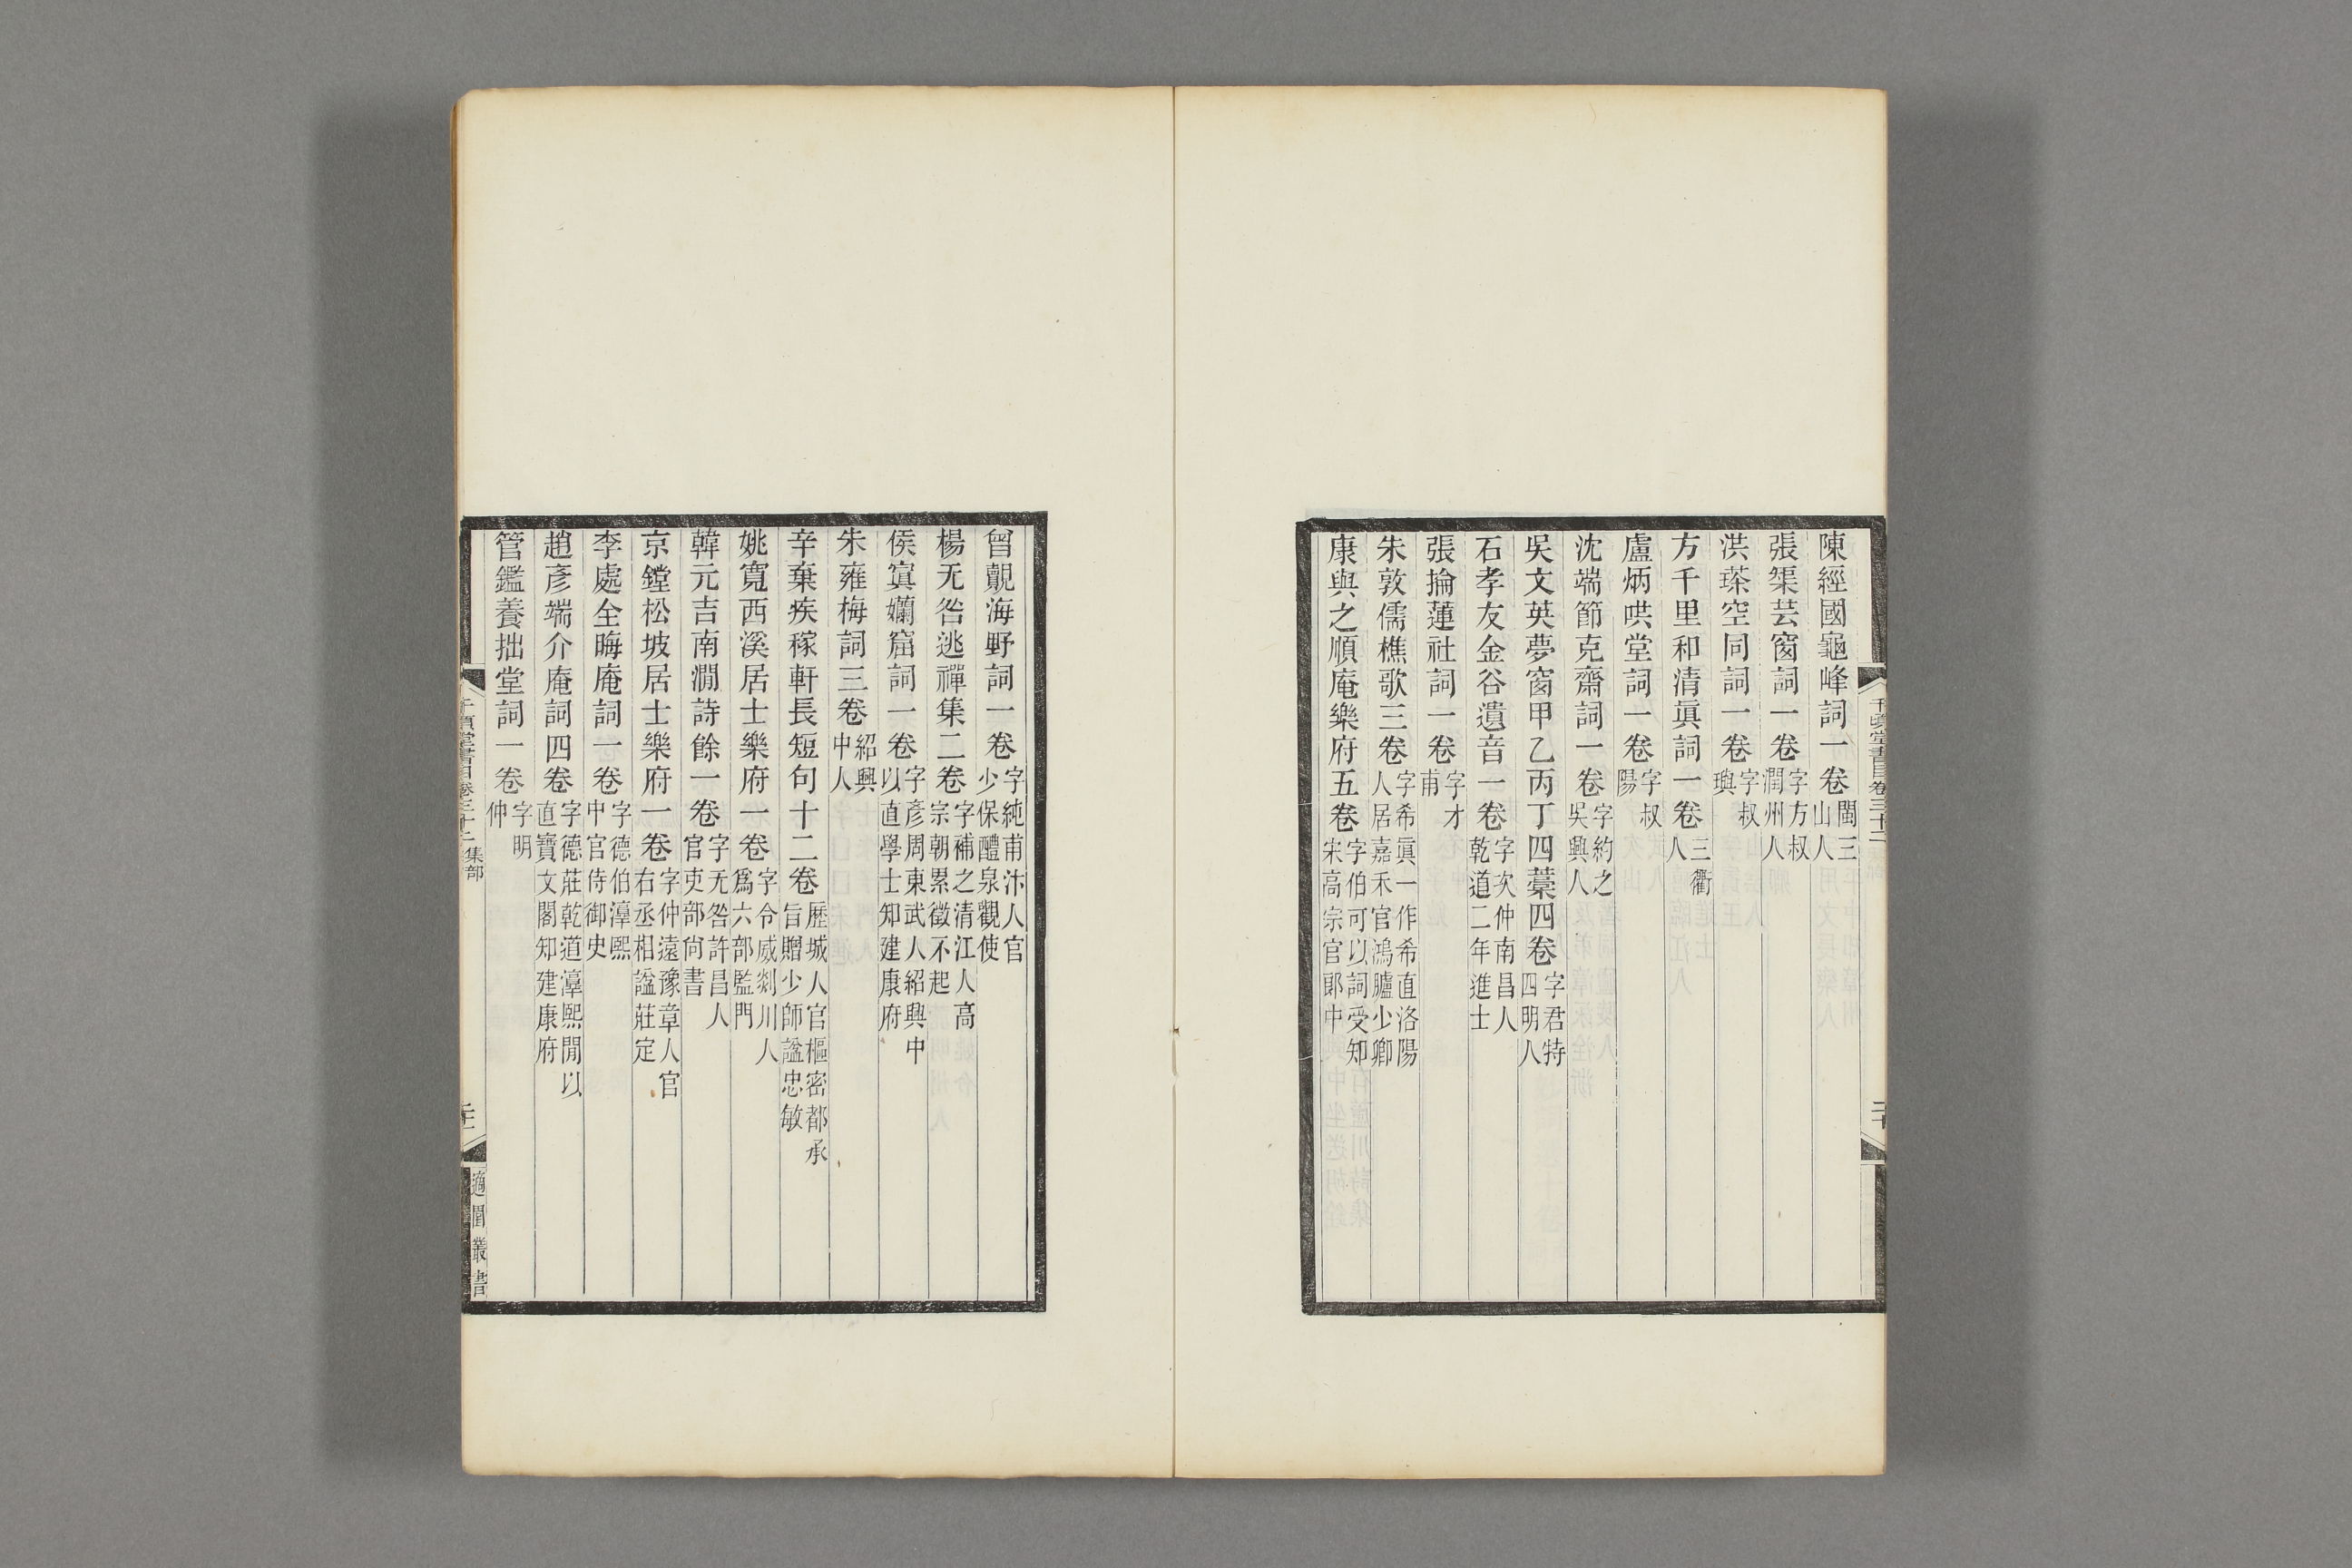 陳經國龜峰詞一卷閩三山人
張榘芸窗詞一卷字方叔潤州人
洪瑹空同詞一卷字叔璵
方千里和清眞詞一卷三衢人
盧炳哄堂詞一卷字叔陽
沈端節克齋詞一卷字約之吳興人
吳文英夢窗甲乙丙丁四藁四卷字君特四明人
石孝友金谷遺音一卷字次仲南昌人乾道二年進士
張掄蓮社詞一卷字才甫
朱敦儒樵歌三卷字希眞一作希直洛陽人居嘉禾官鴻臚少卿
康與之順庵樂府五卷字伯可以詞受知宋高宗官郞中
千頃堂書目卷三十二
曾覿海野詞一卷字純甫汴人官少保醴泉觀使
楊无咎逃禪集二卷字補之清江人高宗朝累徵不起
侯寘孏窟詞一卷字彥周東武人紹興中以直學士知建康府
朱雍梅詞三卷紹興中人
辛棄疾稼軒長短句十二卷歷城人官樞密都承旨贈少師諡忠敏
姚寬西溪居士樂府一卷字令威剡川人爲六部監門
韓元吉南澗詩餘一卷字无咎許昌人官吏部尙書
京鏜松坡居士樂府一卷字仲遠豫章人官右丞相諡莊定
李處全晦庵詞一卷字德伯湻熙中官侍御史
趙彥端介庵詞四卷字德莊乾道湻熙閒以直寶文閣知建康府
管鑑養拙堂詞一卷字明仲
千頃堂書目卷三十二 集部
適園叢書